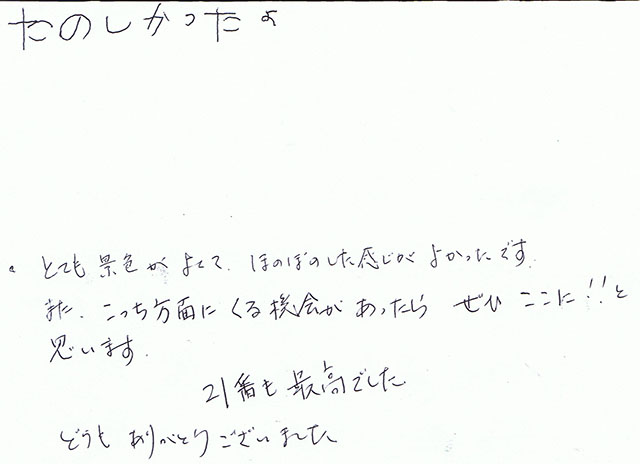 たのしかったよ
。とても景色がよくて、ほのぼのした感じがよかったです。
また、こっち方面にくる機会があったら ぜひ ここに!!と
思います。
21番も最高でした
どうもありがとうございました